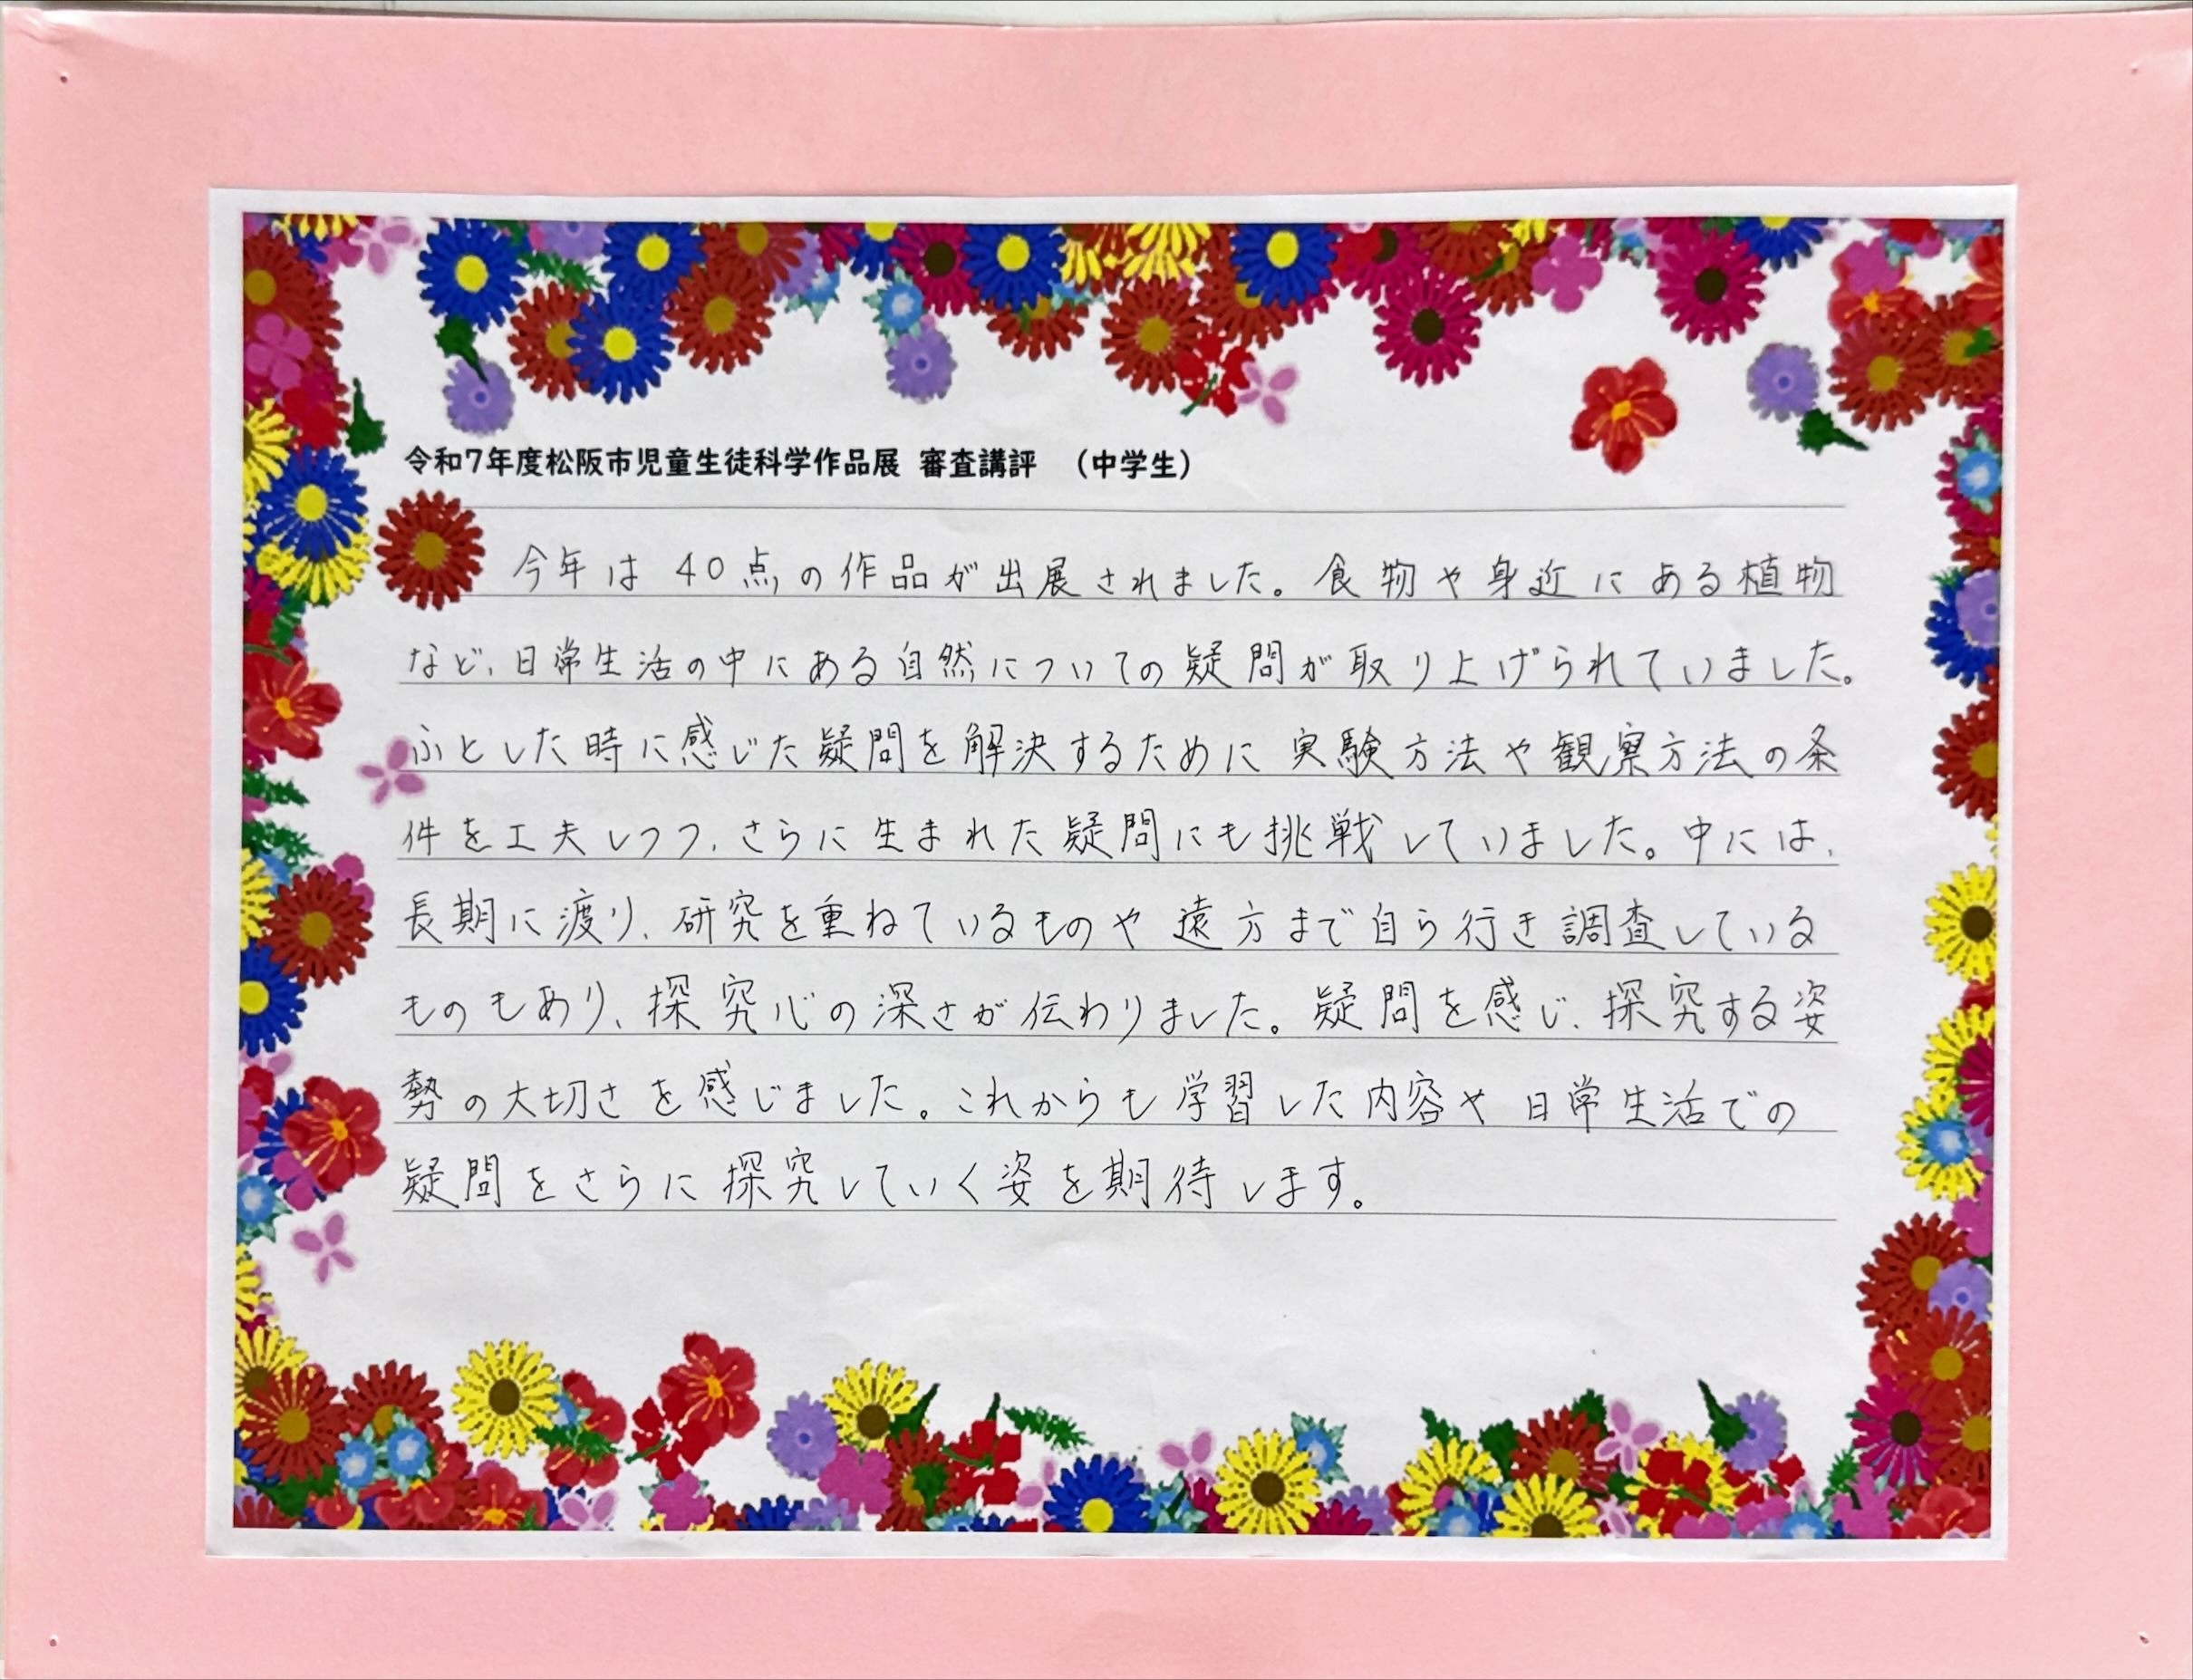 令和7年度松阪市児童生徒科学作品展 審査講評 （中学生）
今年は40点の作品が出展されました。食物や身近にある植物
など、日常生活の中にある自然についての疑問が取り上げられていました。
ふとした時に感じた疑問を解決するために実験方法や観察方法の条
件を工夫しつつ、さらに生まれた疑問にも挑戦していました。中には、
長期に渡り、研究を重ねているものや遠方まで自ら行き調査している
ものもあり、探究心の深さが伝わりました。疑問を感じ、探究する姿
勢の大切さを感じました。これからも学習した内容や日常生活での
疑問をさらに探究していく姿を期待します。